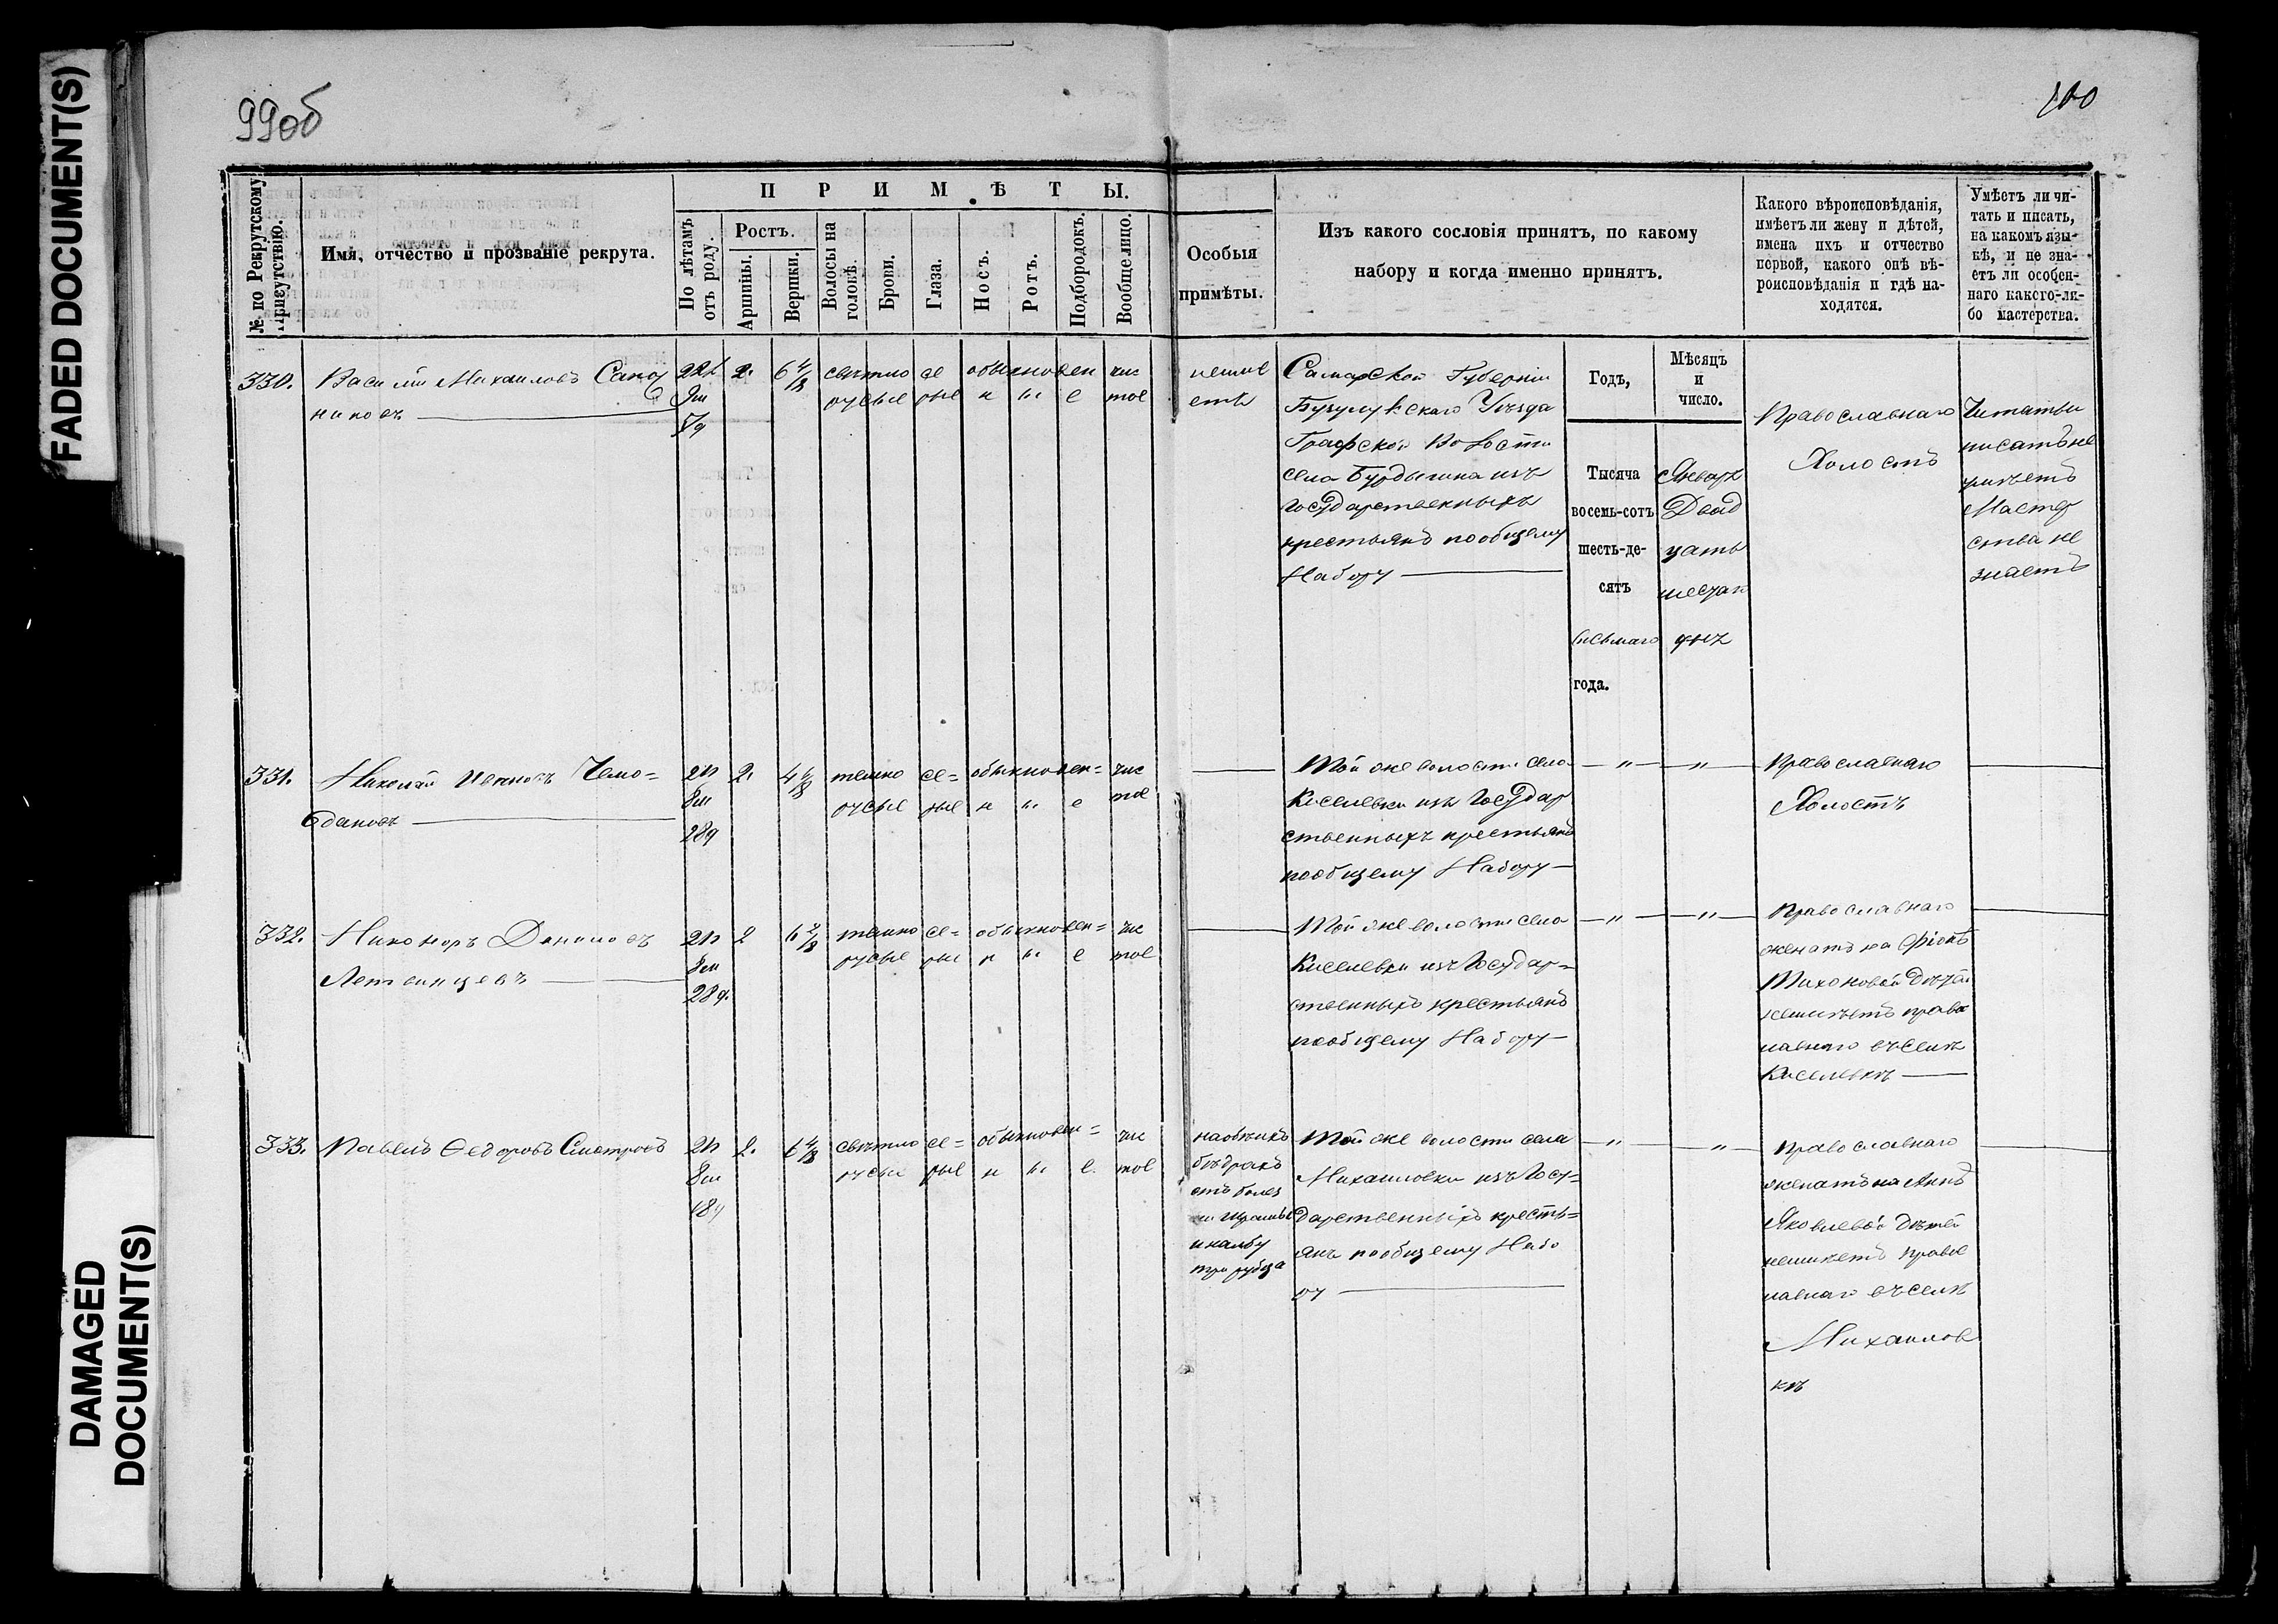 FADED DOCUMENT(S)
DAMAGED
DOCUMENT(S)
99об
100
№ по Рекрутскому
Присутствію.
Имя, отчество и прозваніе рекрута.
ПРИМѢТЫ.
По лѣтамъ
отъ роду.
Ростъ.
Аршины.
Вершки.
Волосы на
головѣ.
Брови.
Глаза.
Носъ.
Ротъ.
Подбородокъ.
Вообще лицо.
Особыя
примѣты.
Изъ какого сословія принятъ, по какому
набору и когда именно принятъ.
Какого вѣроисповѣданія,
имѣетъ ли жену и дѣтей,
имена ихъ и отчество
первой, какого онѣ вѣ-
роисповѣданія и гдѣ на-
ходятся.
Умѣетъ ли чи-
тать и писать,
на какомъ язы-
кѣ, и не зна-
етъ ли особен-
наго какого-ли-
бо мастерства.
330.
Василій Михаиловъ Сапож
никовъ
22л
2.
6 4/8
свѣтло
русые
се
рые
обыкновен
н ы е
чис
тое
неиме
етъ
Самарской Губерніи
Бузулукскаго Уѣзда
Графской Волости
села Бурдыгина изъ
Государственныхъ
крестьянъ пообщему
Набору
Годъ,
Мѣсяцъ
и
число.
Тысяча
восемь-сотъ
шесть-де-
сятъ
года.
Январь
Двад
цать
Православнаго
Холостъ
Читать и
писать не
умѣетъ
Мастер
ства не
знаетъ
331.
Николай Ивановъ Чемо=
дановъ
21л
8м
28д
2.
4 6/8
темно
русые
се=
рые
обыкновен=
н ы е
чис
тое
Той же волости села
Киселевки изъ Государ
ственныхъ крестьянъ
пообщему Набору
"
"
Православнаго
Холостъ
332.
Никоноръ Даниловъ
Летвинцевъ
21л
8м
28д.
2
6 2/8
темно
русые
се=
рые
обыкновен=
н ы е
чис
тое
Той же волости села
Киселевки изъ Государ=
ственныхъ крестьянъ
пообщему Набору
"
"
Православнаго
женатъ на
Тихоновой дѣтей
неимѣетъ правос
лавнаго въ селѣ
Киселевкѣ
333.
Павелъ Ѳедоровъ
21л
8м
18д
2.
6 4/8
свѣтло
русые
се=
рые
обыкновен=
н ы е.
чис
тое
бѣдрахъ
отъ болез
ни шрамы
и на лбу
три рубца
Той же волости села
Михаиловки изъ Госу=
дарственныхъ кресть=
янъ пообщему Набо
ру
"
"
Православнаго
женатъ на Аннѣ
Яковлевой дѣтей
неимѣетъ правос
лавнаго въ селѣ
Михаилов
кѣ